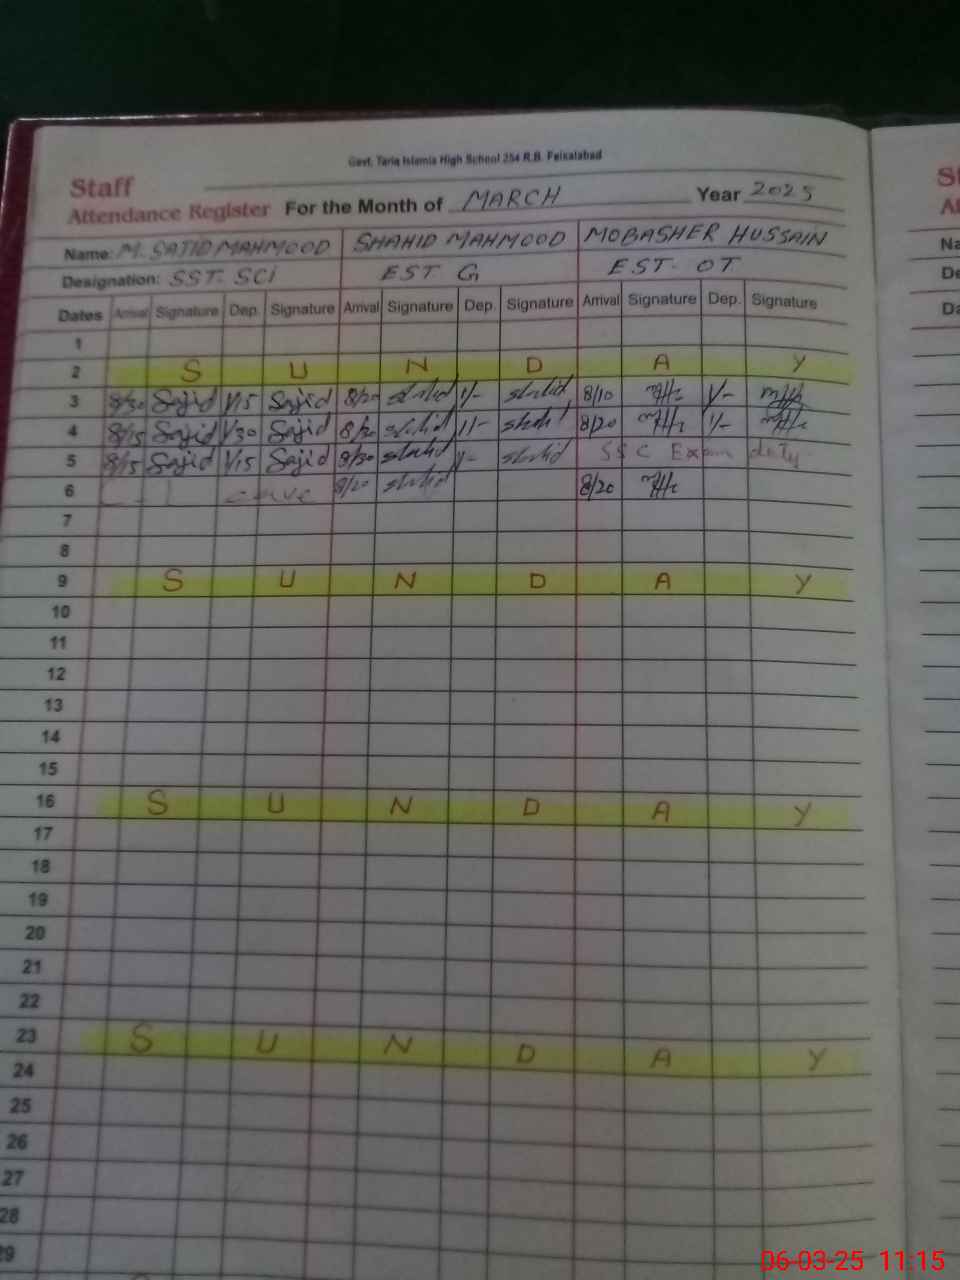 Govt. Tariq Islamia High School 254 R.B. Faisalabad
Staff
Attendance Register For the Month of MARCH Year 2025
Name: M. SAJID MAHMOOD SHAHID MAHMOOD MOBASHER HUSSAIN
Designation: SST. SCI EST G EST. OT
Dates Arrival Signature Dep. Signature Arrival Signature Dep. Signature Arrival Signature Dep. Signature
1
2 S U N D A Y
3 8/30 Sajid 1/15 Sajid 8/20 shahid 1/- shahid 8/10 1/-
4 8/15 Sajid 1/30 Sajid 8/20 shahid 1/- shahid 8/20 1/-
5 8/15 Sajid 1/15 Sajid 8/20 shahid 1/- shahid SSC Exam duty
6 8/20 shahid 8/20
7
8
9 S U N D A Y
10
11
12
13
14
15
16 S U N D A Y
17
18
19
20
21
22
23 S U N D A Y
24
25
26
27
28
29
St
At
Na
De
Da
06-03-25 11:15